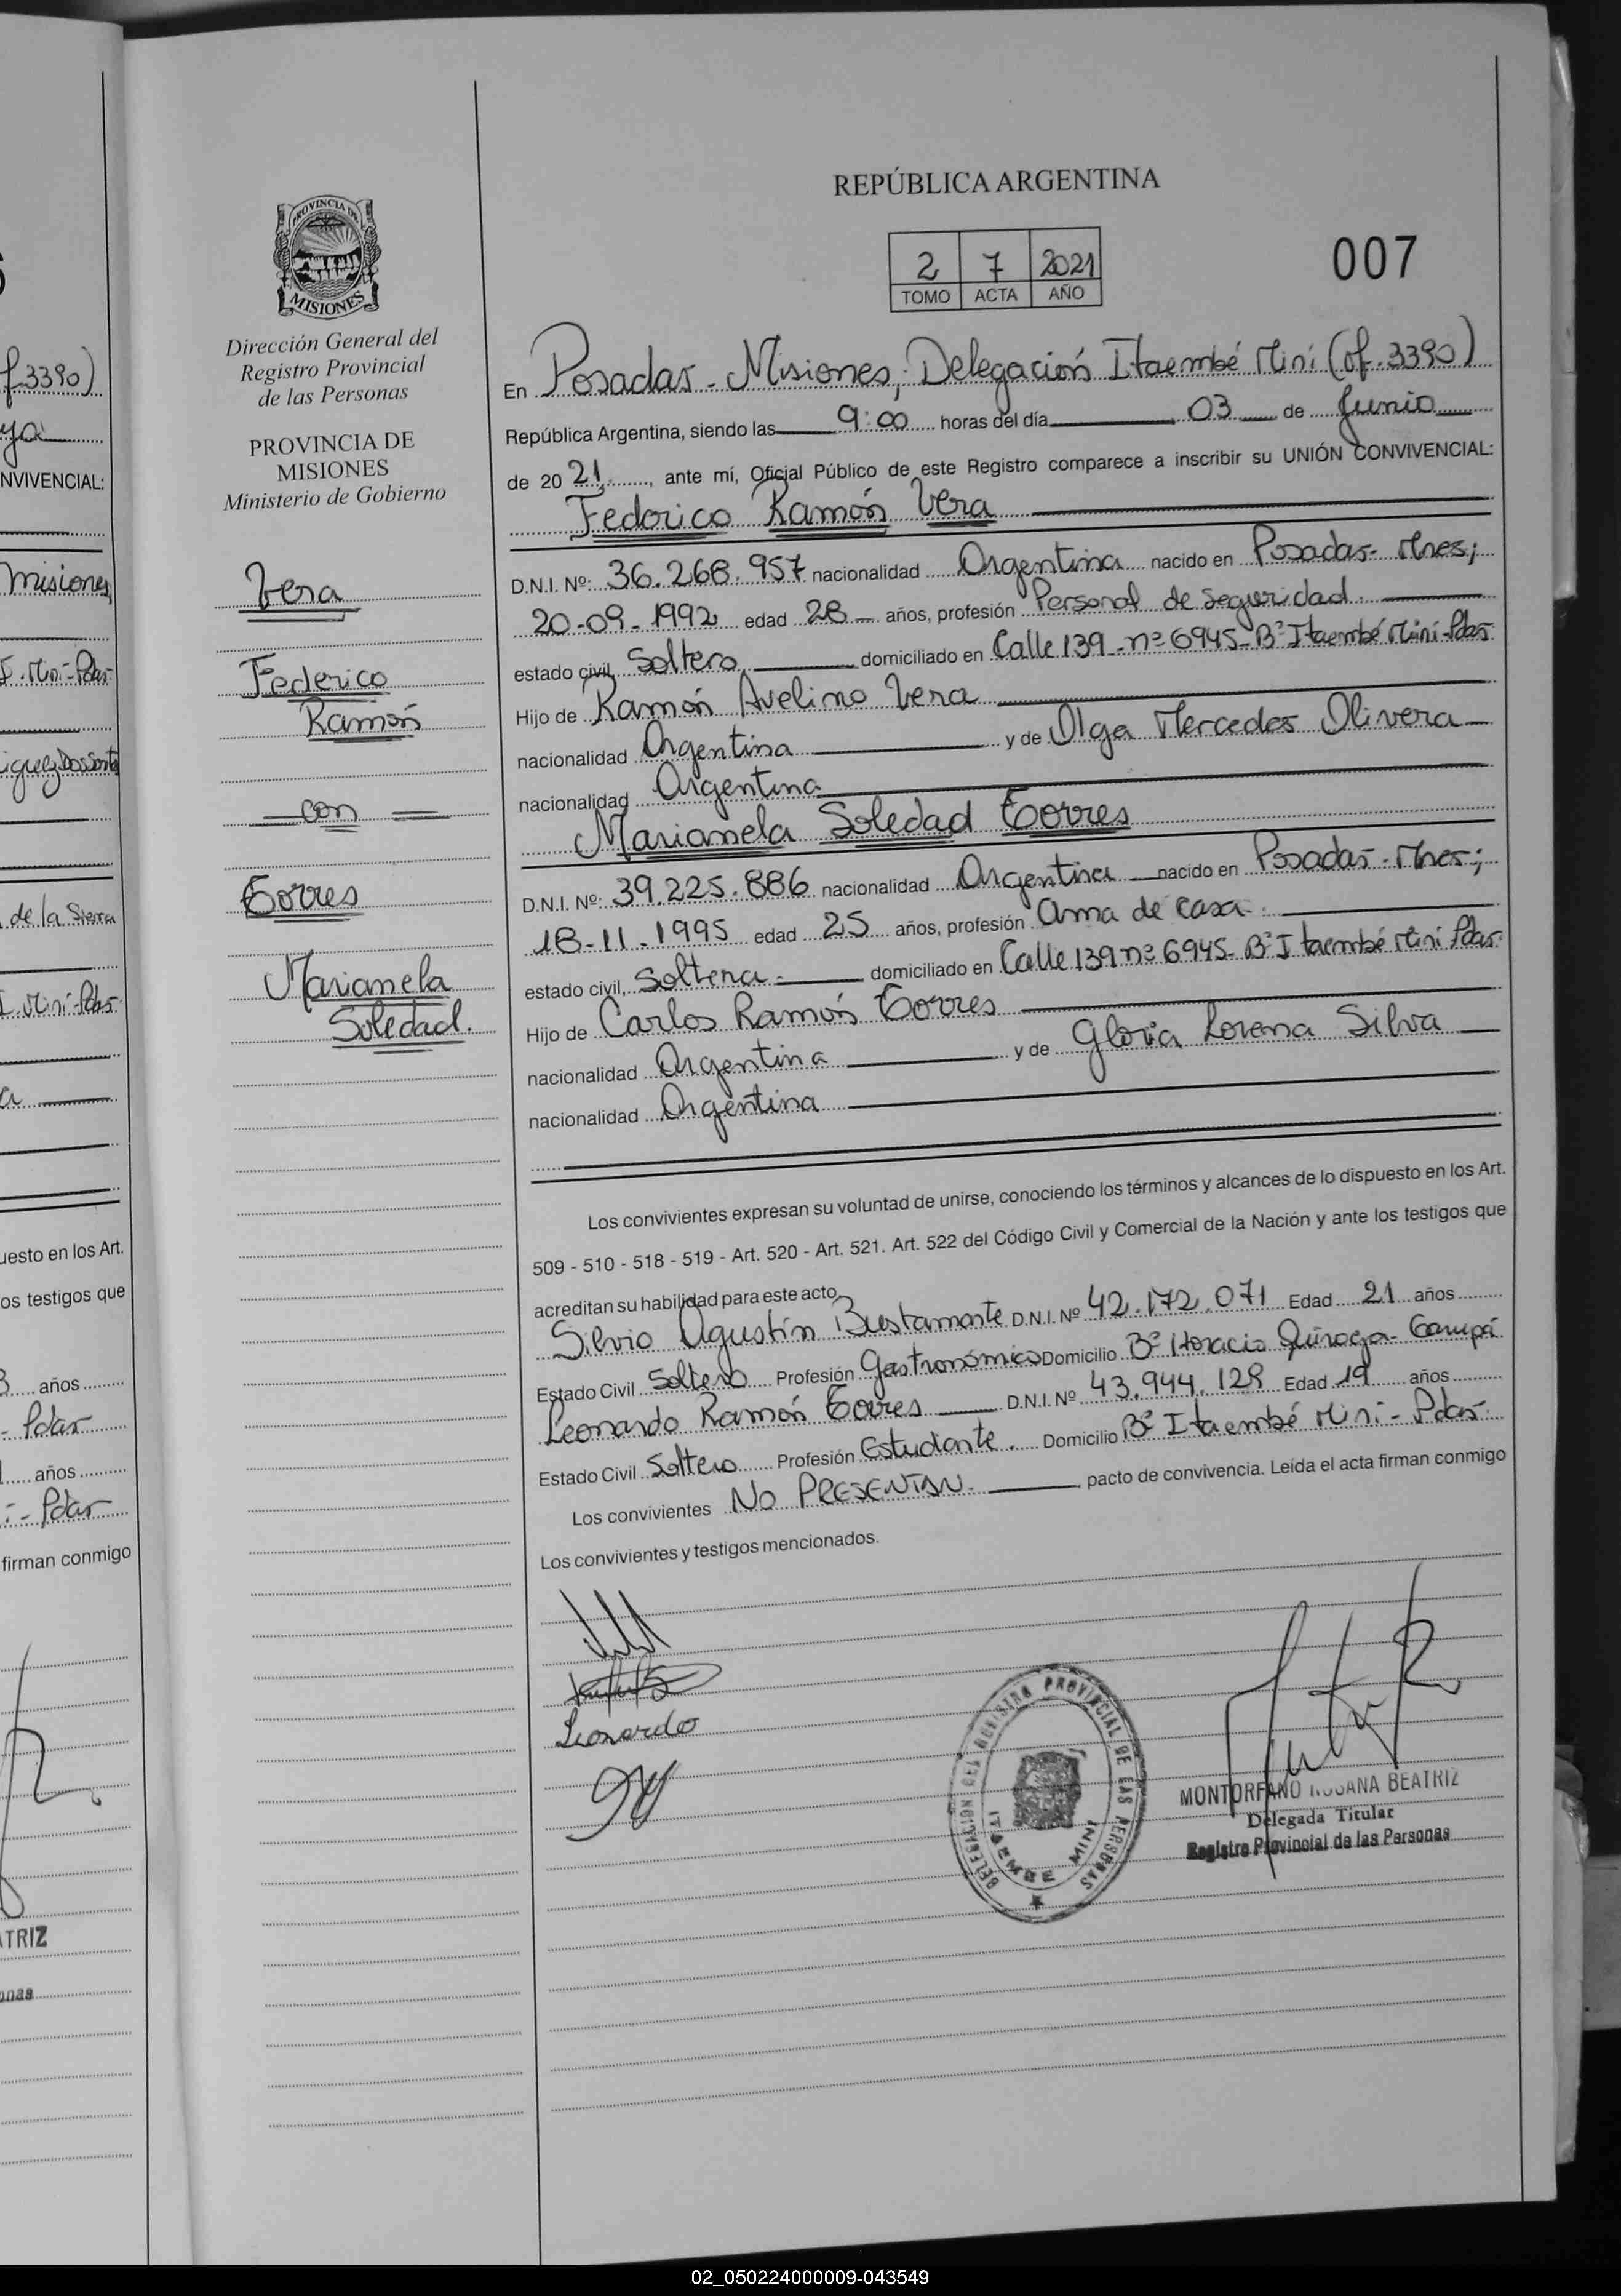 REPÚBLICA ARGENTINA
2 7 2021
TOMO ACTA AÑO
007
PROVINCIA DE
MISIONES
Dirección General del
Registro Provincial
de las Personas
PROVINCIA DE
MISIONES
Ministerio de Gobierno
Vera
Federico
Ramón
con
Torres
Marianela
Soledad.
En Posadas - Misiones, Delegación Itaembé Miní (of. 3390)
República Argentina, siendo las 9:00 horas del día 03 de Junio
de 20 21, ante mí, Oficial Público de este Registro comparece a inscribir su UNIÓN CONVIVENCIAL:
Federico Ramón Vera
D.N.I. Nº: 36.268.957 nacionalidad Argentina nacido en Posadas - Mnes;
20-09-1992 edad 28 años, profesión Personal de seguridad.
estado civil, Soltero domiciliado en Calle 139 - nº 6945 - Bº Itaembé Miní - Pdas
Hijo de Ramón Avelino Vera
nacionalidad Argentina y de Olga Mercedes Olivera
nacionalidad Argentina
Marianela Soledad Torres
D.N.I. Nº: 39.225.886 nacionalidad Argentina nacido en Posadas - Mnes;
18-11-1995 edad 25 años, profesión ama de casa.
estado civil, Soltera. domiciliado en Calle 139 nº 6945 - Bº Itaembé Miní Pdas.
Hijo de Carlos Ramón Torres
nacionalidad Argentina y de Gloria Lorena Silva
nacionalidad Argentina
Los convivientes expresan su voluntad de unirse, conociendo los términos y alcances de lo dispuesto en los Art.
509 - 510 - 518 - 519 - Art. 520 - Art. 521. Art. 522 del Código Civil y Comercial de la Nación y ante los testigos que
acreditan su habilidad para este acto
Silvio Agustín Bustamante D.N.I. Nº 42.172.071 Edad 21 años
Estado Civil Soltero Profesión Gastronómico Domicilio Bº Horacio Quiroga - Garupá
Leonardo Ramón Torres D.N.I. Nº 43.944.128 Edad 19 años
Estado Civil Soltero Profesión Estudiante. Domicilio Bº Itaembé Miní - Pdas.
Los convivientes NO PRESENTAN. pacto de convivencia. Leída el acta firman conmigo
Los convivientes y testigos mencionados.
Leonardo
DELEGACIÓN DEL REGISTRO PROVINCIAL DE LAS PERSONAS
ITAEMBE MINI
MONTORFANO ROSANA BEATRIZ
Delegada Titular
Registro Provincial de las Personas
f 3390)
NVIVENCIAL:
misiones,
de la Sierra
uesto en los Art.
os testigos que
años
- Pdas
años
- Pdas
firman conmigo
ATRIZ
onas
02_050224000009-043549